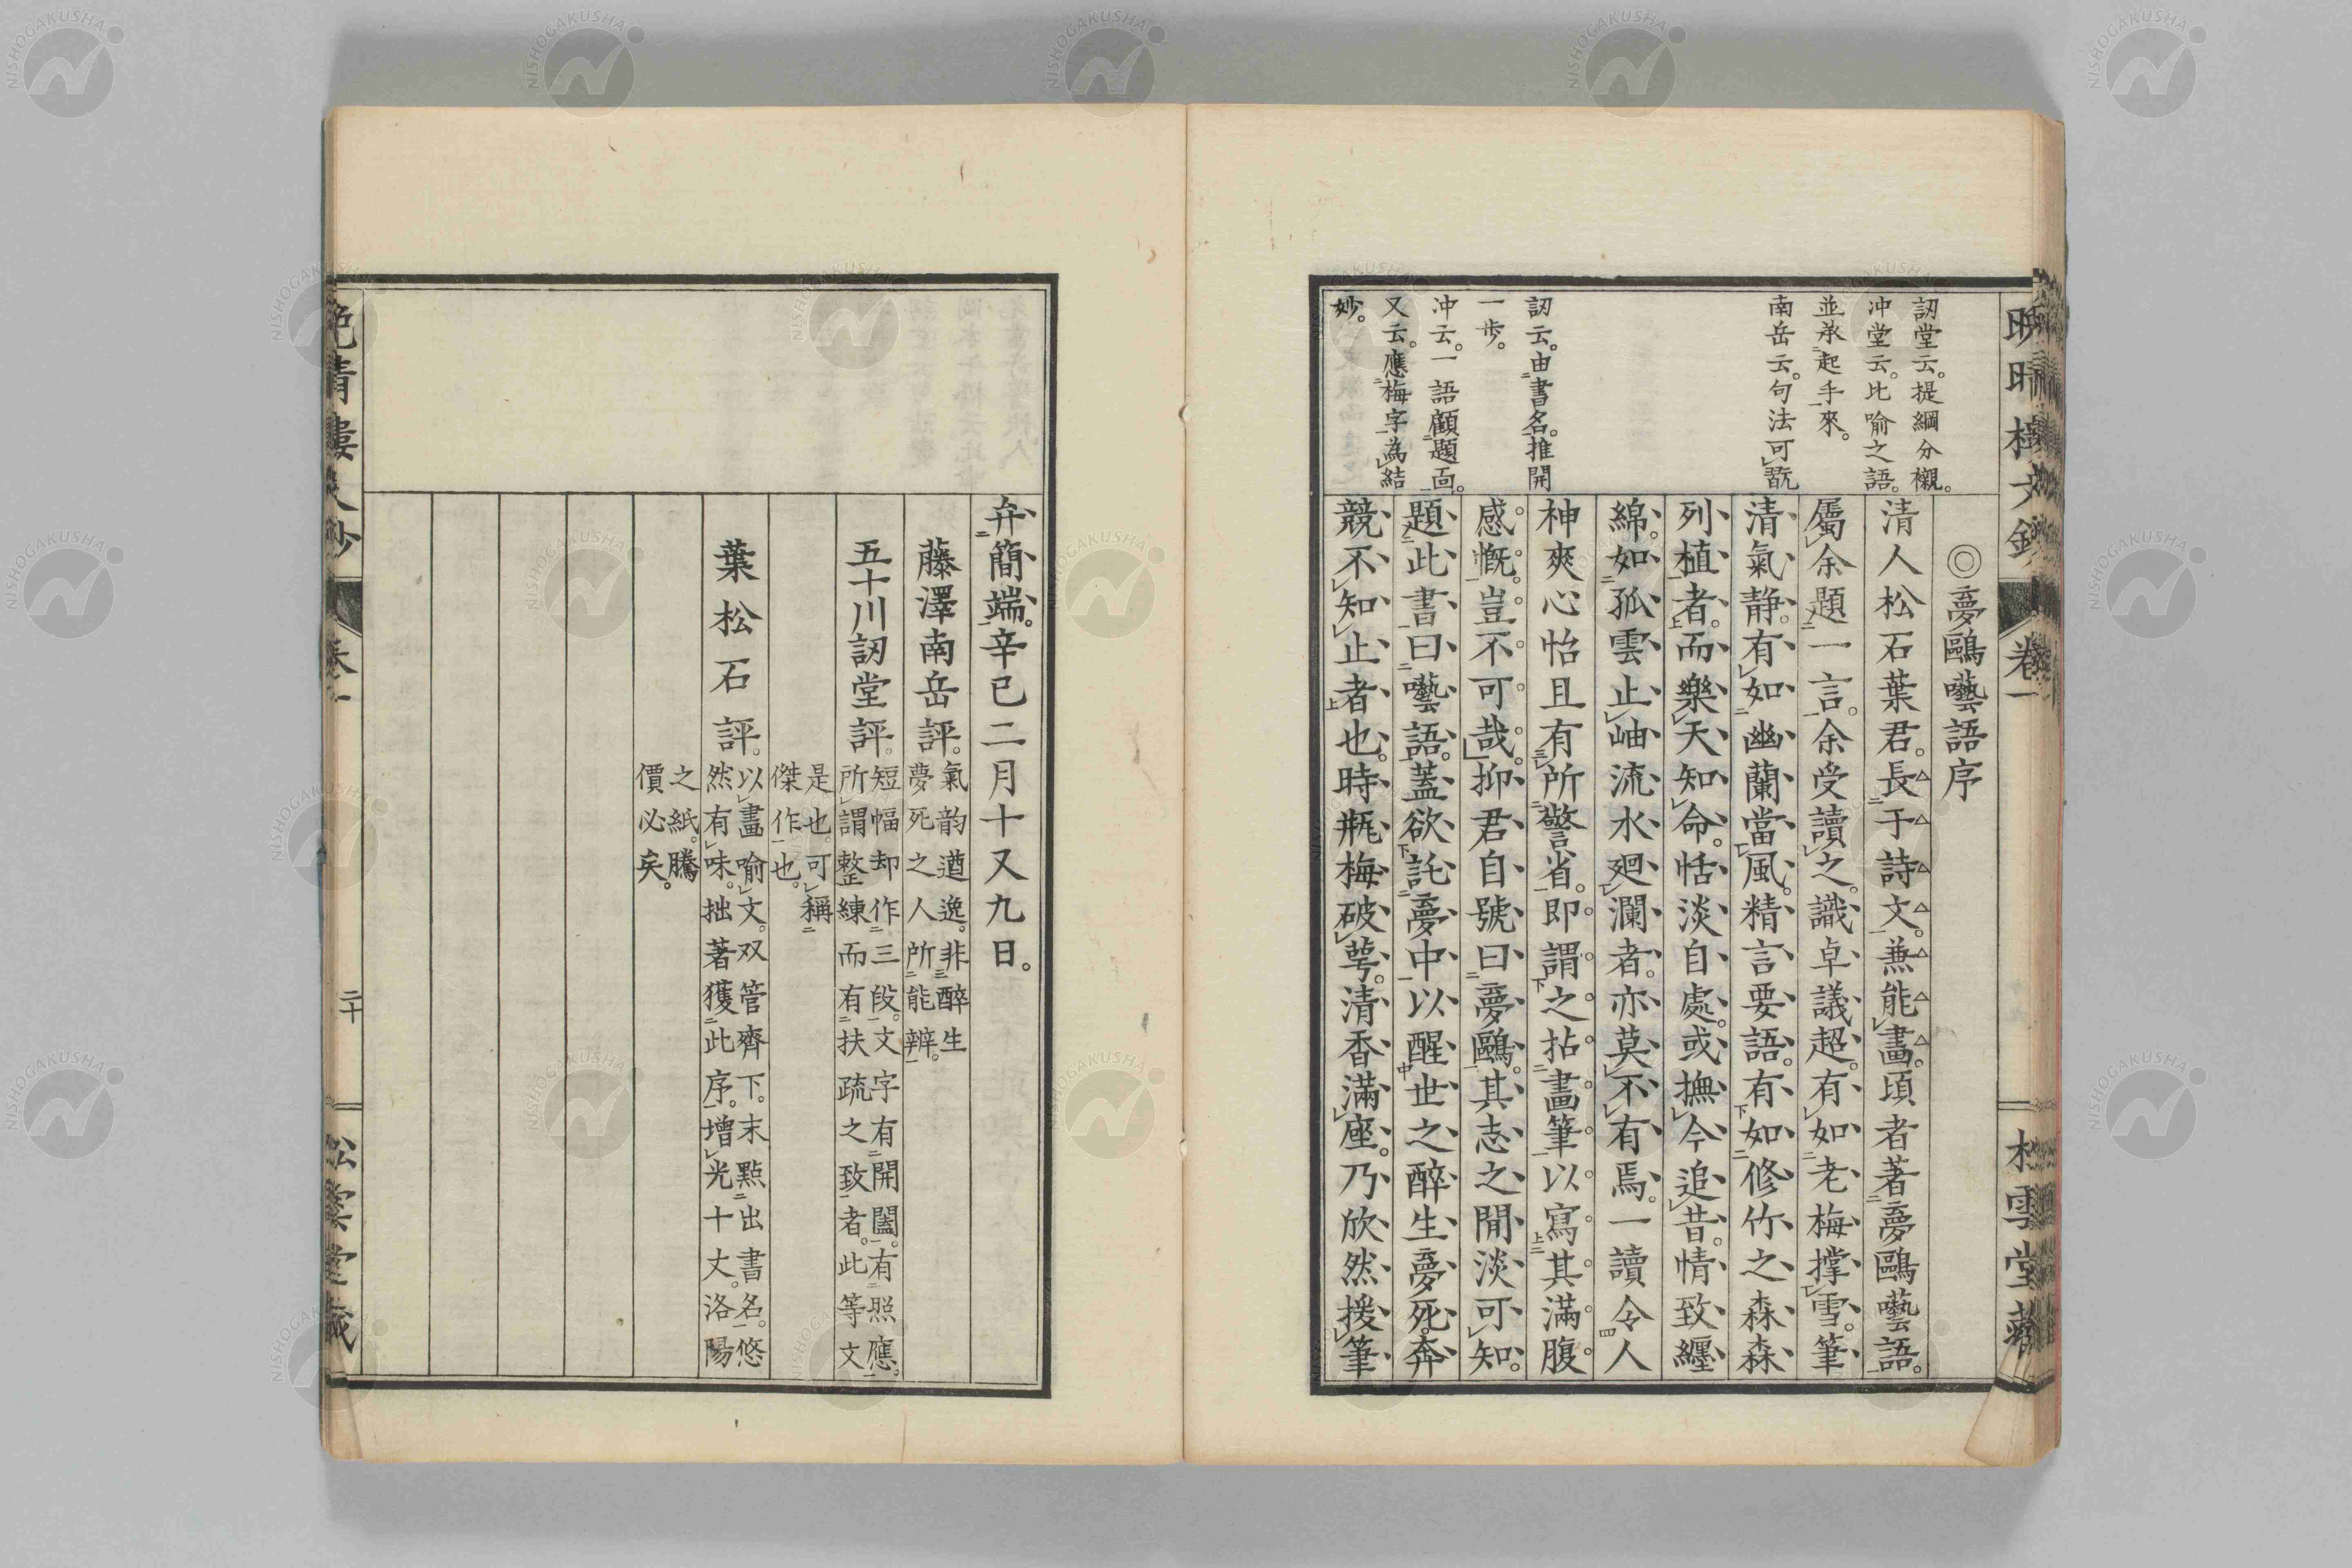 訒堂云。提綱分襯。
冲堂云。比喻之語。
並承起手來。
南岳云。句法可翫
訒云。由書名。推開
一歩。
冲云。一語顧題面。
又云。應梅字為結
妙。
◎夢鷗囈語序
清人松石葉君。長于詩文。兼能畫。頃者著夢鷗囈語。
屬余題一言。余受讀之。識卓議超。有如老梅撑雪。筆
清氣静。有如幽蘭當風。精言要語。有如修竹之森森
列植者。而樂天知命。恬淡自處。或撫今追昔。情致纏
綿。如孤雲止岫流水廻瀾者。亦莫不有焉。一讀令人
神爽心怡且有所警省。即謂之拈畫筆以寫其滿腹
感慨。豈不可哉。抑君自號曰夢鷗。其志之閒淡可知。
題此書曰囈語。蓋欲託夢中以醒世之醉生夢死。奔
競不知止者也。時瓶梅破萼。清香滿座。乃欣然援筆
卷一
弁簡端。辛巳二月十又九日。
藤澤南岳評。氣韵遒逸。非醉生
夢死之人所能辨。
五十川訒堂評。短幅却作三段。文字有開闔。有照應。
所謂整練而有扶疏之致者。此等文
是也。可稱
傑作也。
葉松石評。以畫喻文。双管齊下。末點出書名。悠
然有味。拙著獲此序。增光十丈。洛陽
之紙。騰
價必矣。
二十